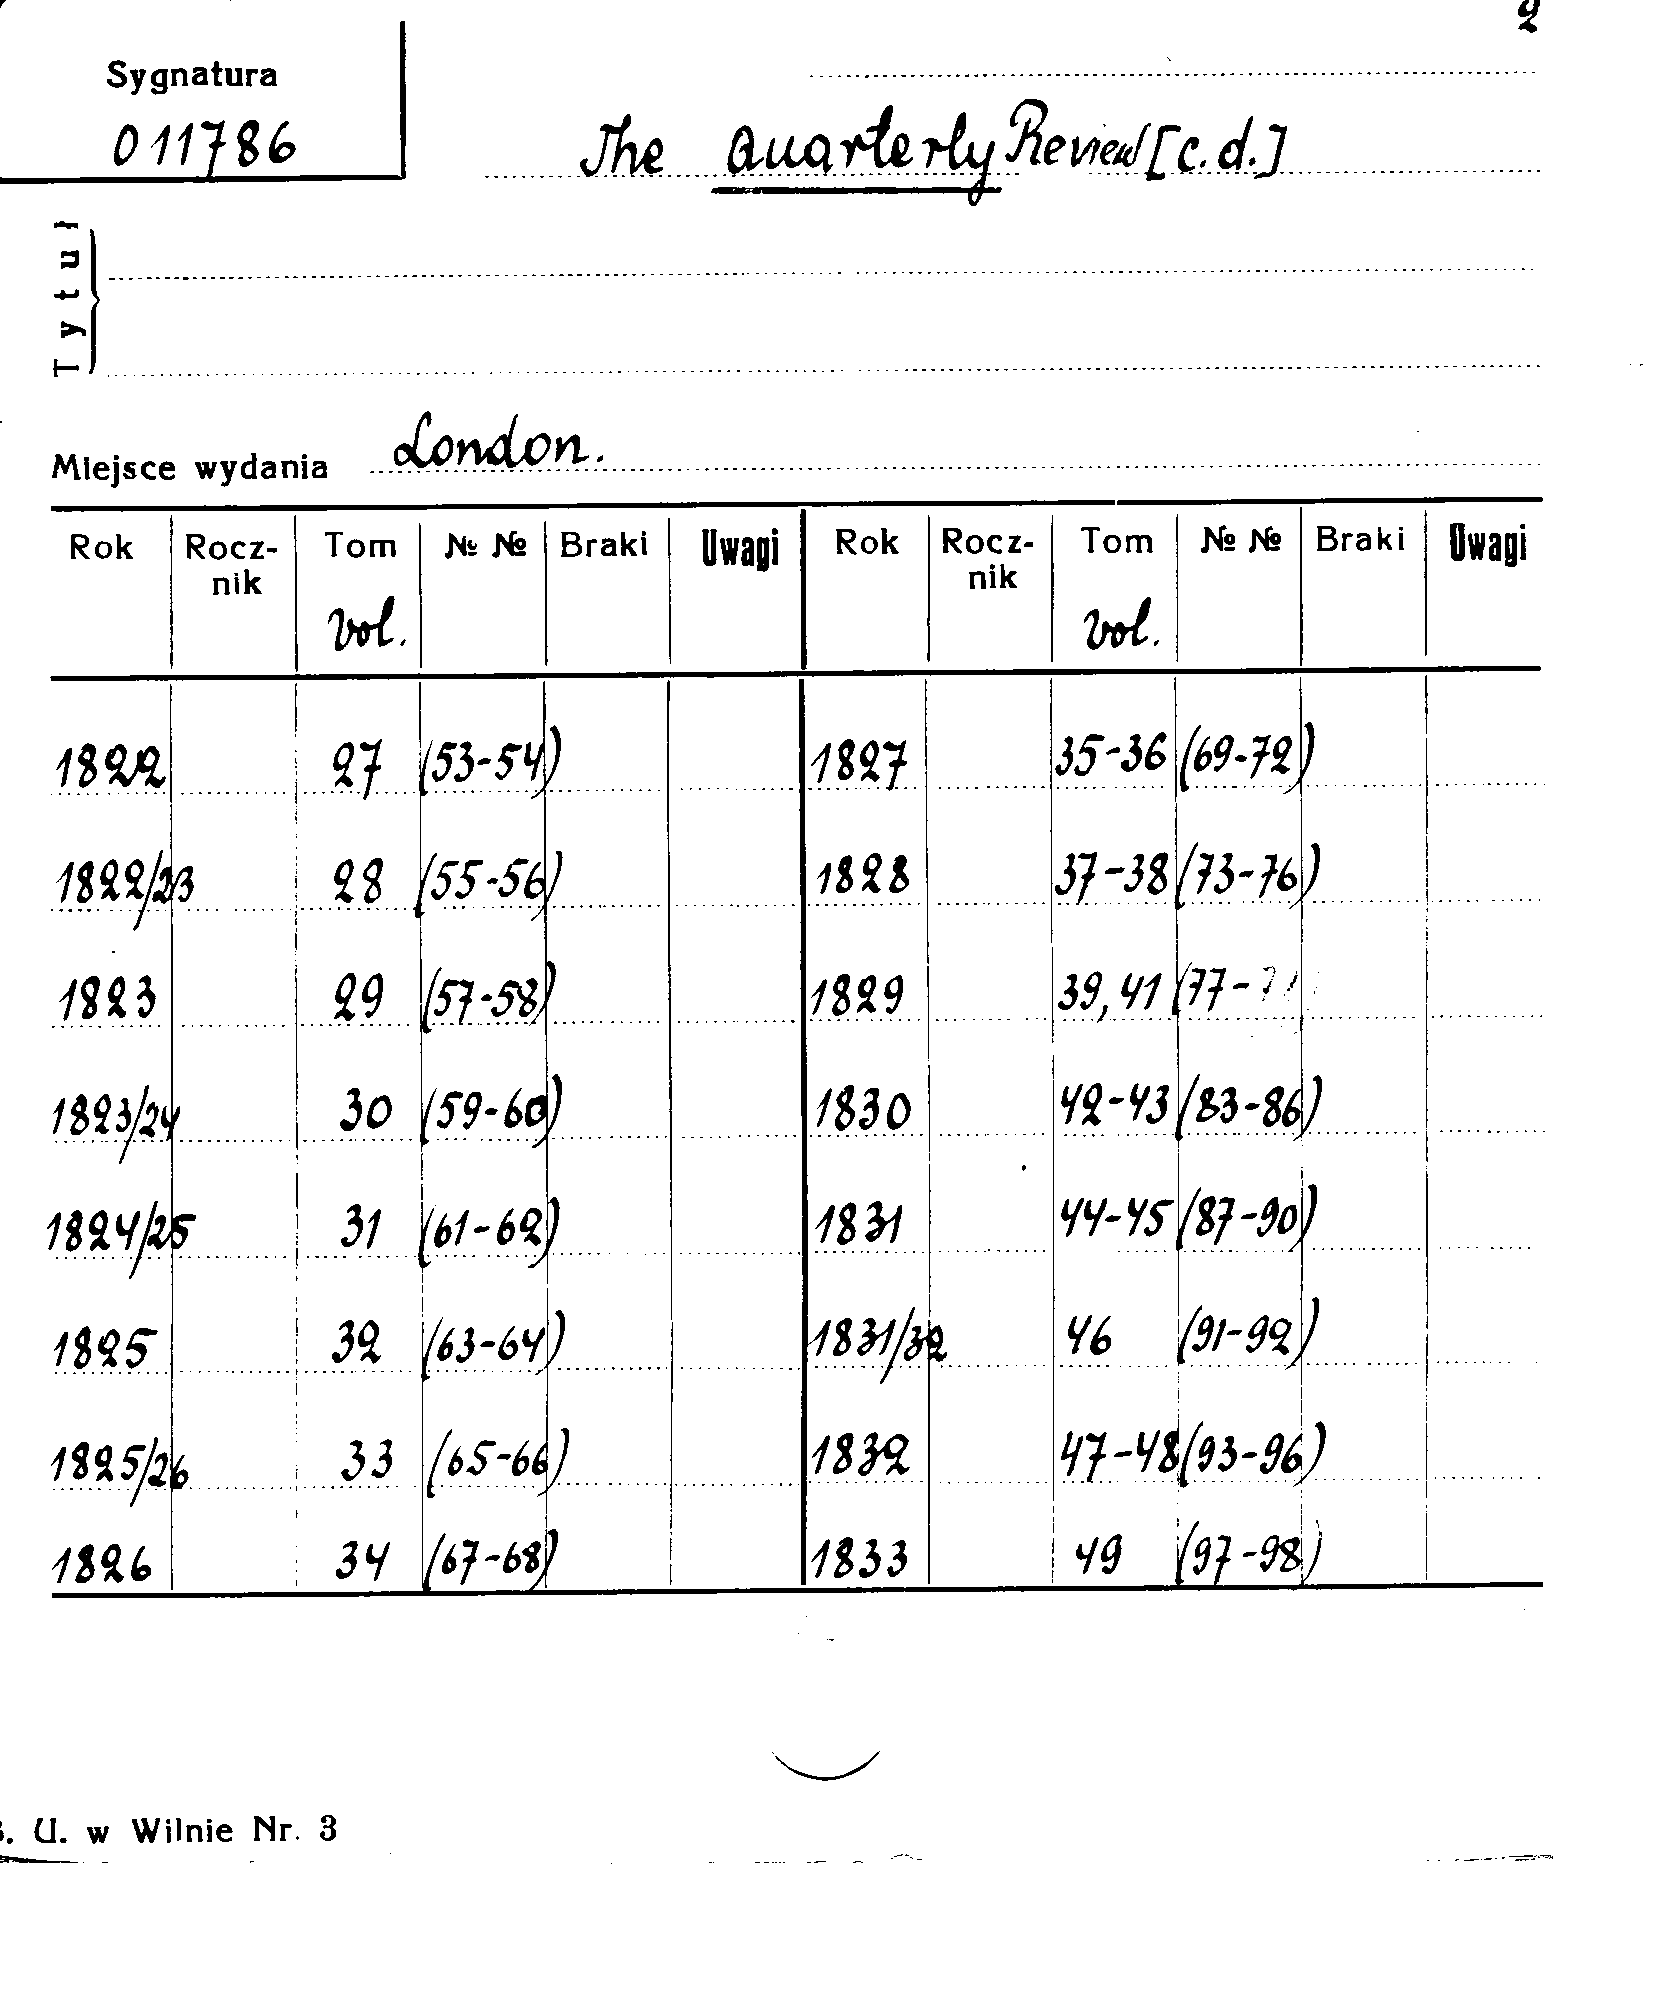 2
Sygnatura
011786
The Quarterly Review [c.d.]
Tytuł
Miejsce wydania London.
Rok Rocz-nik Tom № № Braki Uwagi Rok Rocz-nik Tom № № Braki Uwagi
vol. vol.
1822 27 (53-54) 1827 35-36 (69-72)
1822/23 28 (55-56) 1828 37-38 (73-76)
1823 29 (57-58) 1829 39, 41 (77-
1823/24 30 (59-60) 1830 42-43 (83-86)
1824/25 31 (61-62) 1831 44-45 (87-90)
1825 32 (63-64) 1831/32 46 (91-92)
1825/26 33 (65-66) 1832 47-48 (93-96)
1826 34 (67-68) 1833 49 (97-98)
B. U. w Wilnie Nr. 3